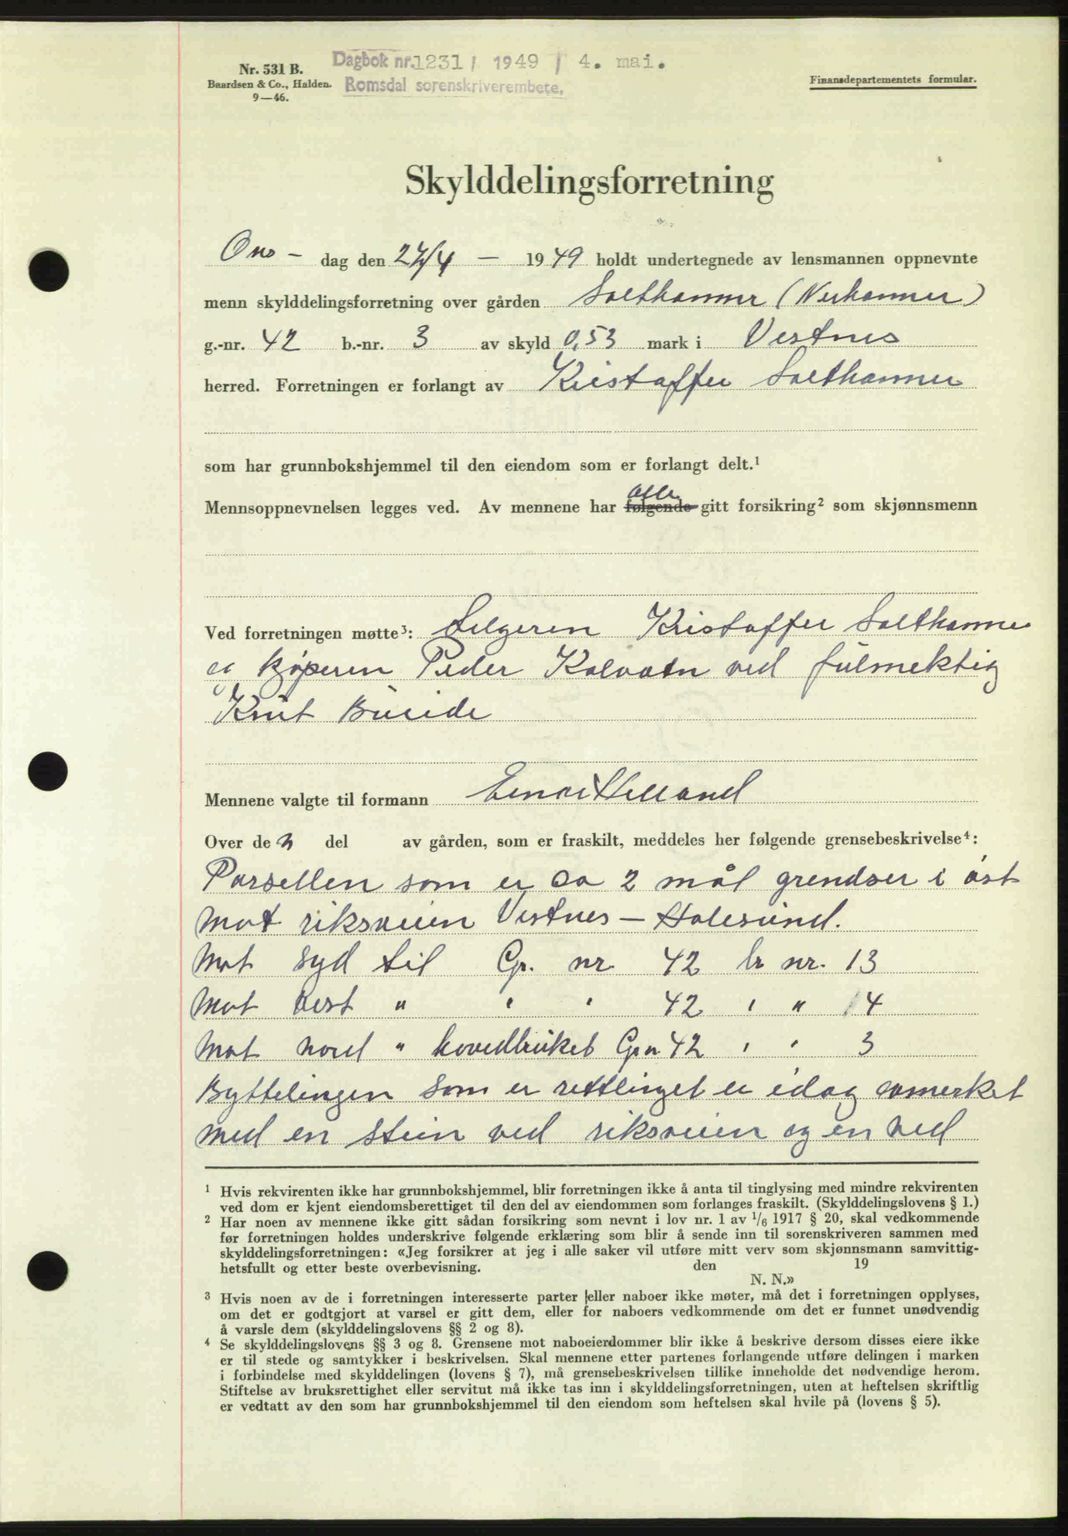 Nr. 531 B.
Baardsen & Co., Halden.
9—46.
Dagbok nr. 1231 / 1949 / 4. mai.
Romsdal sorenskriverembete.
Finansdepartementets formular.
Skylddelingsforretning
Ons - dag den 27/4 - 1949 holdt undertegnede av lensmannen oppnevnte
menn skylddelingsforretning over gården Salthammer (Nerhammer)
g.-nr. 42 b.-nr. 3 av skyld 0,53 mark i Vestnes
herred. Forretningen er forlangt av Kristoffer Salthammer
som har grunnbokshjemmel til den eiendom som er forlangt delt.¹
alle
Mennsoppnevnelsen legges ved. Av mennene har følgende gitt forsikring² som skjønnsmenn
Ved forretningen møtte³: Selgeren Kristoffer Salthammer
og kjøperen Peder Kalvatn ved fulmektig
Knut
Mennene valgte til formann Einar Helland
Over de n del av gården, som er fraskilt, meddeles her følgende grensebeskrivelse⁴:
Parsellen som er ca 2 mål grendser i øst
mot riksveien Vestnes — Aalesund.
Mot syd til Gr. nr. 42 br nr. 13
Mot vest " " " 42 " " 14
Mot nord " hovedbruket Gr n 42 " " 3
Byttelingen som er rettlinjet er idag avmerket
med en stein ved riksveien og en ved
¹ Hvis rekvirenten ikke har grunnbokshjemmel, blir forretningen ikke å anta til tinglysing med mindre rekvirenten
ved dom er kjent eiendomsberettiget til den del av eiendommen som forlanges fraskilt. (Skylddelingslovens § 1.)
² Har noen av mennene ikke gitt sådan forsikring som nevnt i lov nr. 1 av 1/6 1917 § 20, skal vedkommende
før forretningen holdes underskrive følgende erklæring som blir å sende inn til sorenskriveren sammen med
skylddelingsforretningen: «Jeg forsikrer at jeg i alle saker vil utføre mitt verv som skjønnsmann samvittig-
hetsfullt og etter beste overbevisning. den 19
N. N.»
³ Hvis noen av de i forretningen interesserte parter eller naboer ikke møter, må det i forretningen opplyses,
om det er godtgjort at varsel er gitt dem, eller for naboers vedkommende om det er funnet unødvendig
å varsle dem (skylddelingslovens §§ 2 og 8).
⁴ Se skylddelingslovens §§ 3 og 8. Grensene mot naboeierdommer blir ikke å beskrive dersom disses eiere ikke
er til stede og samtykker i beskrivelsen. Skal mennene etter partenes forlangende utføre delingen i marken
i forbindelse med skylddelingen (lovens § 7), må grensebeskrivelsen tillike inneholde det nødvendige herom.
Stiftelse av bruksrettighet eller servitut må ikke tas inn i skylddelingsforretningen, uten at heftelsen skriftlig
er vedtatt av den som har grunnbokshjemmel til den eiendom som heftelsen skal hvile på (lovens § 5).